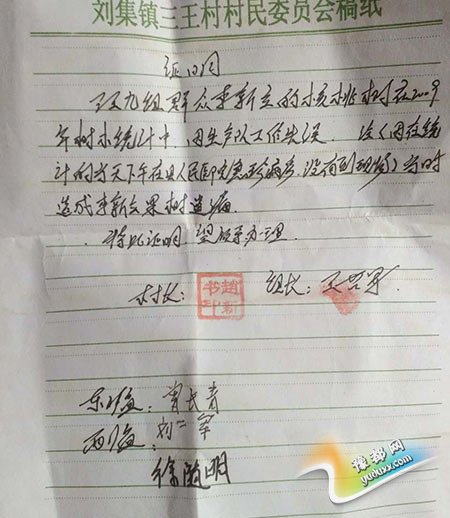 刘集镇三王村村民委员会稿纸
证明
我九组群众李新立的核桃树在2009
年树木统计中，因生产队工作失误
计的当天下午在县人民医院看病，没有到现场）当时
造成李新立果树遗漏
特此证明，望领导办理.
村长：
组长：
赵新
书印
东临：曾长青
西临：刘二军
徐随明
豫都网
yuduxx.com